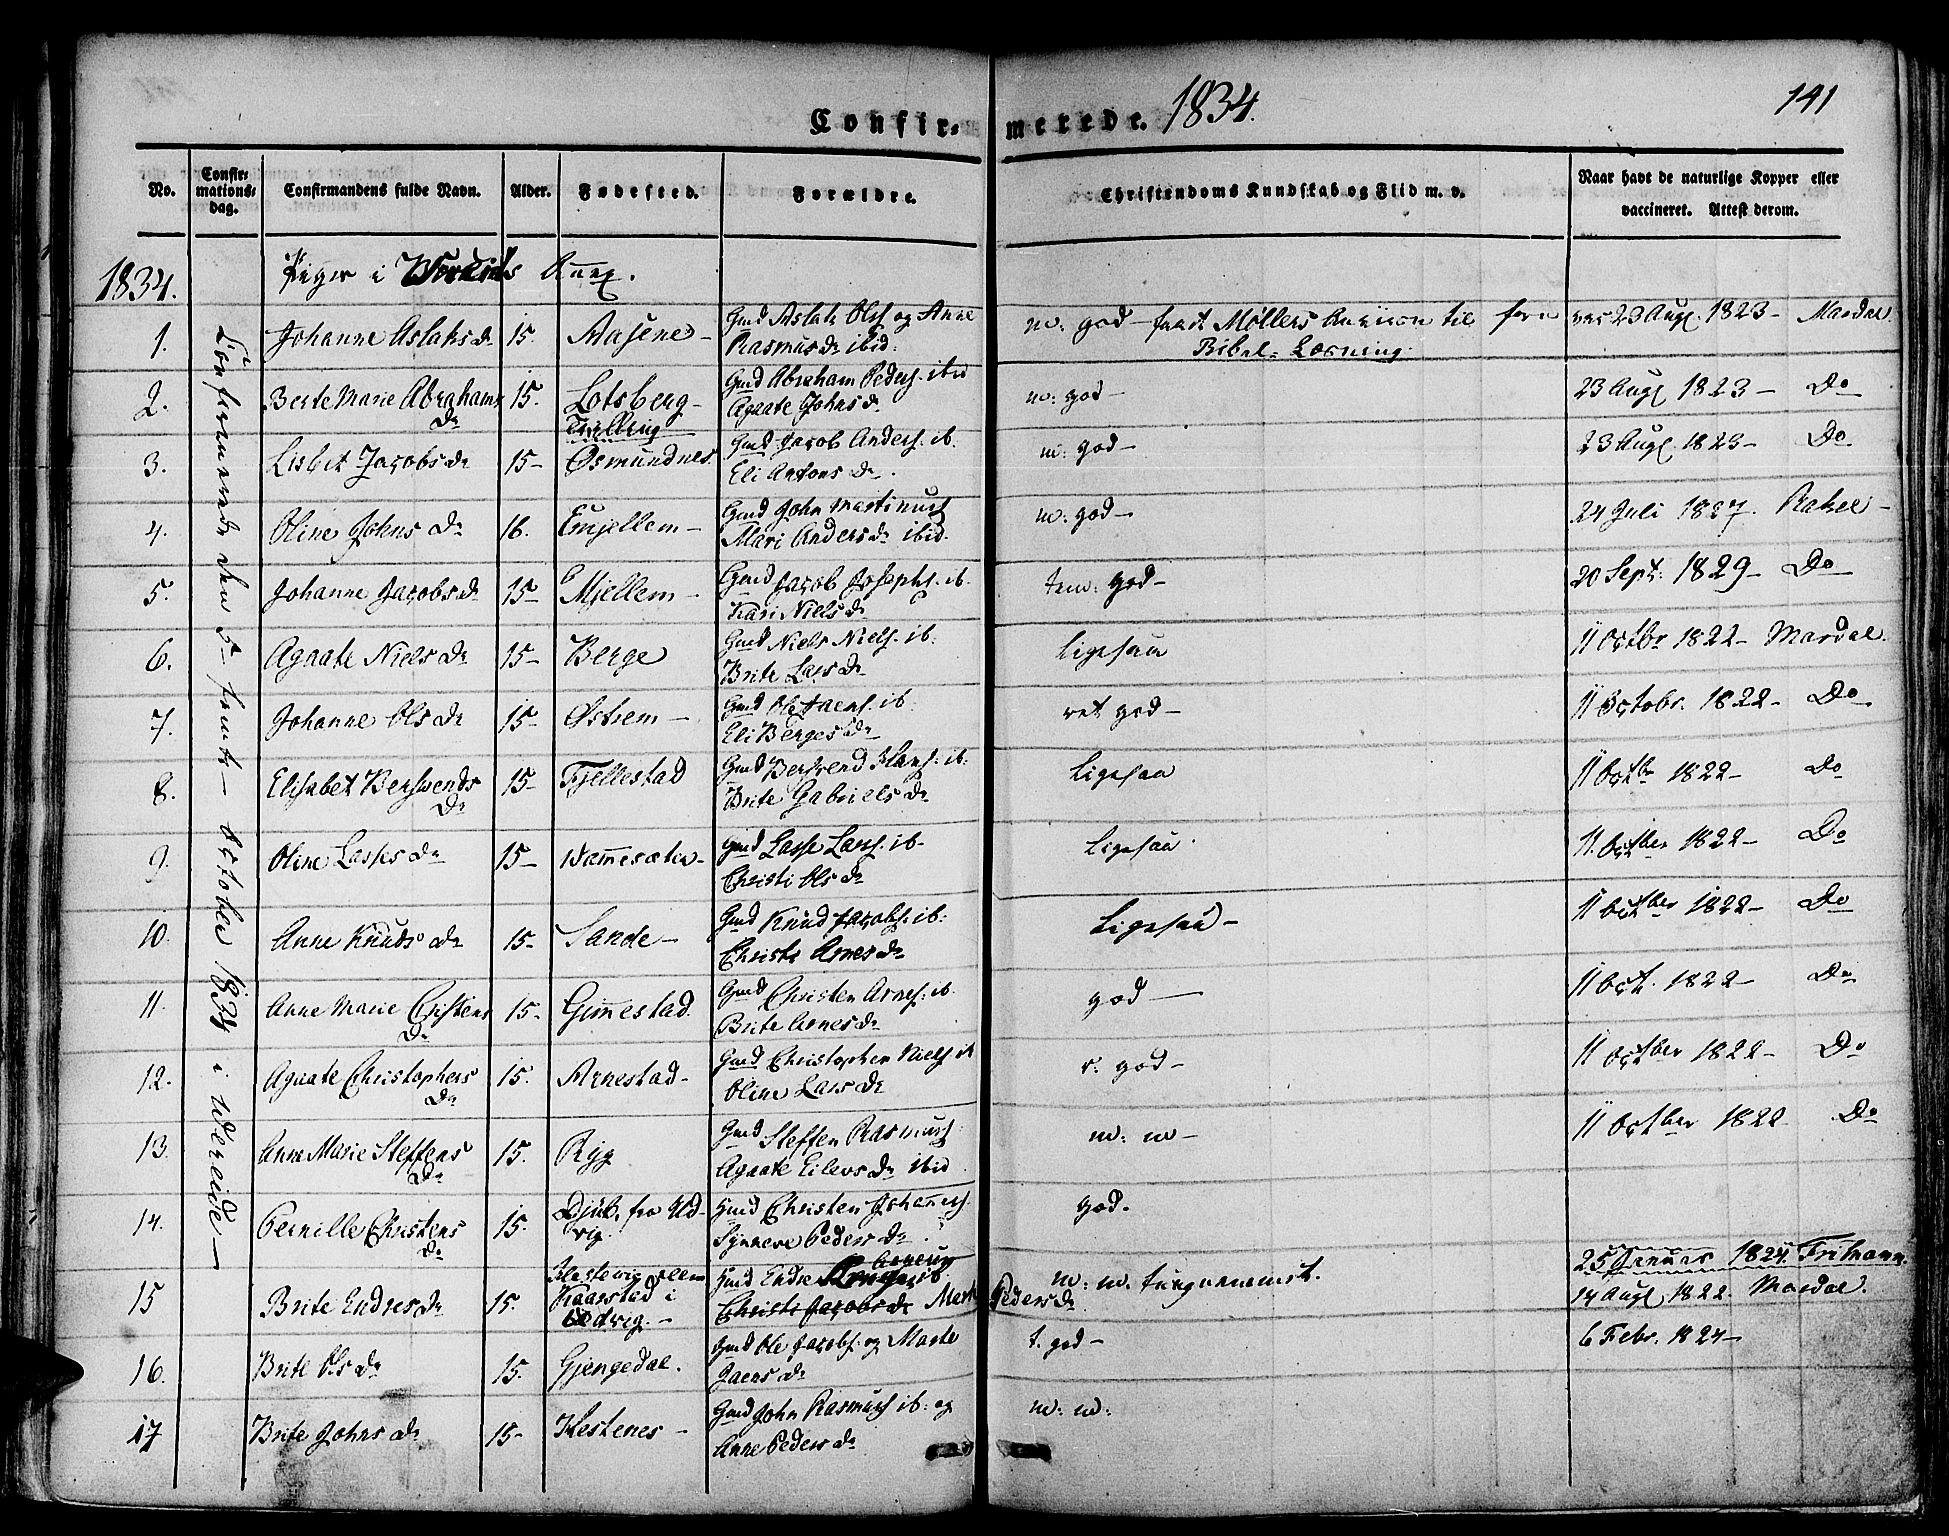 141
Confir- merede. 1834.
No. Confirmationsdag. Confirmandens fulde Navn. Alder. Fødested. Forældre. Christendoms Kundskab og Flid m. v. Naar havt de naturlige Kopper eller vaccineret. Attest derom.
1834. Piger i Annex.
Confirmerede den 5te October 1834 i Wereide
1. Johanne Aslaksdr 15. Aasene Gmd Aslak Ols. og Anne Rasmusdr ibid. m: god 23 Augs. 1823 Mardal
Bibel-Læsning
2. Berte Marie Abrahamsdr 15. Lotsberg Gmd Abraham Peders. ibid Agnate Johnsdr m: god 23 Augs 1823 Do
3. Lisbet Jacobsdr 15 Osmundnes Gmd Jacob Anders. ib. Eli Antonsdr m: god 23 Augs 1823 Do
4. Oline Johnsdr 16. Emjellem Gmd John Martinus Mari Andersdr ibid. m: god 24 Juli 1827. Rahel
5. Johanne Jacobsdr 15 Mjellem Gmd Jacob Josephs. ib. Kari Nielsdr tem: god 20 Sept: 1829 Do
6. Agnate Nielsdr 15 Berge Gmd Niels Niels. ib. Brite Larsdr Ligesaa 11 Octbr 1822 Mardal.
7. Johanne Olsdr 15 Østrem Gmd Ole Jaens. ib. Eli Bergesdr ret god 11 Octobr. 1822 Do
8. Elisabet Berswendsdr 15 Fjellestad Gmd Berswend Hans. ib. Brite Gabrielsdr Ligesaa 11 Octbr 1822 Do
9. Oline Lassesdr 15 Gmd Lasse Lars. ib Christi Olsdr Ligesaa 11. October 1822 Do
10. Anne Knudsdr 15 Sande Gmd Knud Jacobs. ib: Christi Arnesdr Ligesaa 11 October 1822 Do
11. Anne Marie Christensdr 15 Gimmestad. Gmd Christen Arnes. ib. Brite Arnesdr god 11 Oct. 1822 Do
12. Agnate Christophersdr 15. Arnestad Gmd Christopher Niels ib Oline Larsdr r. god 11 October 1822 Do
13. Anne Marie Steffensdr 15. Ryg Gmd Steffen Rasmus Agnate Eilersdr ibid. m: m 11 October 1822 Do
14. Pernille Christensdr 15. fra Udvig. Gmd Christen Johannes. Synneve Pedersdr god. 25 Januar 1824. Frimann.
15 Brite Endresdr 15. Kaarstad i Udvig. Gmd Endre Christi Jacobsdr Marte Pedersdr m: m. 14 Augs 1822. Mardal.
16. Brite Olsdr 15. Gjengedal. Gmd Ole Jacobs. og Marte Jaensdr t. god 6 Febr. 1824
17 Brite Johnsdr 15 Hestenes Gmd John Rasmus ib: og Anne Pedersdr m: m: